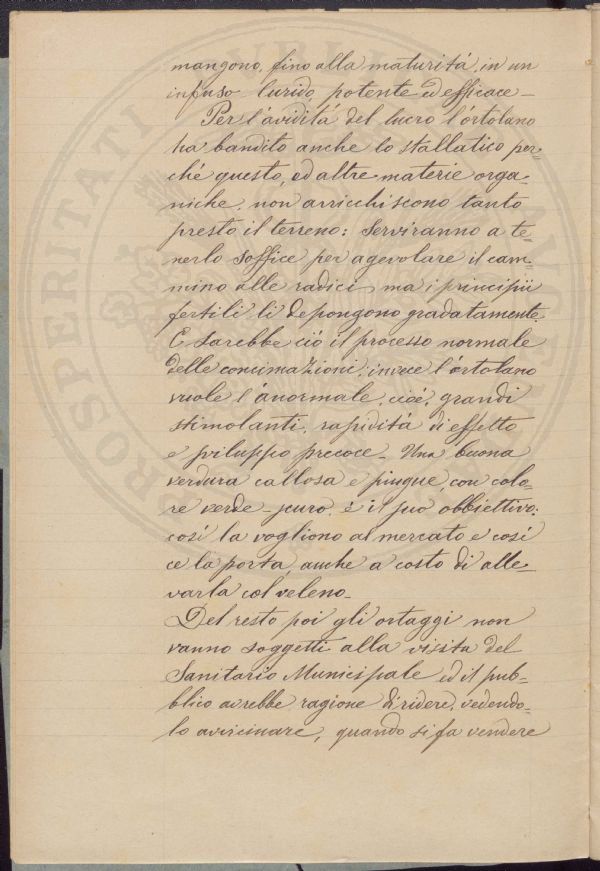 mangono, fino alla maturitá, in un
infuso lurido, potente ed efficace_
Per l'aviditá del lucro l'ortolano
ha bandito anche lo stallatico per-
ché questo, ed altre materie orga-
niche, non arricchiscono tanto
presto il terreno: Serviranno a te-
nerlo soffice per agevolare il cam-
mino alle radici, ma i principii
fertili li depongono gradatamente.
E sarebbe ció il processo normale
delle concimazioni; invece l'ortolano
vuole l'anormale, cioé, grandi
stimolanti, rapiditá di effetto
e sviluppo precoce_ Una buona
verdura callosa e pingue, con colo-
re verde-scuro, é il suo obbiettivo:
cosí la vogliono al mercato e cosí
ce la porta, anche a costo di alle-
varla col veleno_
Del resto poi gli ortaggi non
vanno soggetti alla visita del
Sanitario Municipale ed il pub-
blico avrebbe ragione di ridere, vedendo-
lo avvicinare, quando si fa vendere
PROSPERITATI